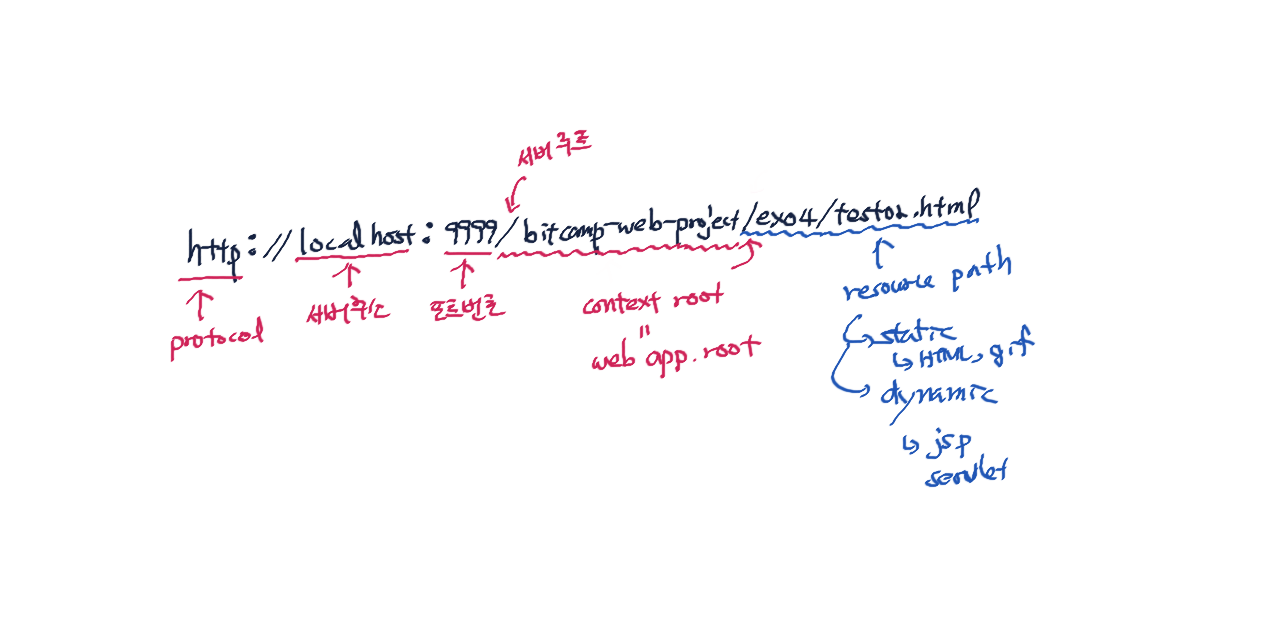 서버 루트
http://localhost:9999/bitcamp-web-project/ex04/test02.html
protocol
서버 주소
포트번호
context root
"
web app. root
resource path
static
↳ HTML, gif
dynamic
↳ jsp
servlet